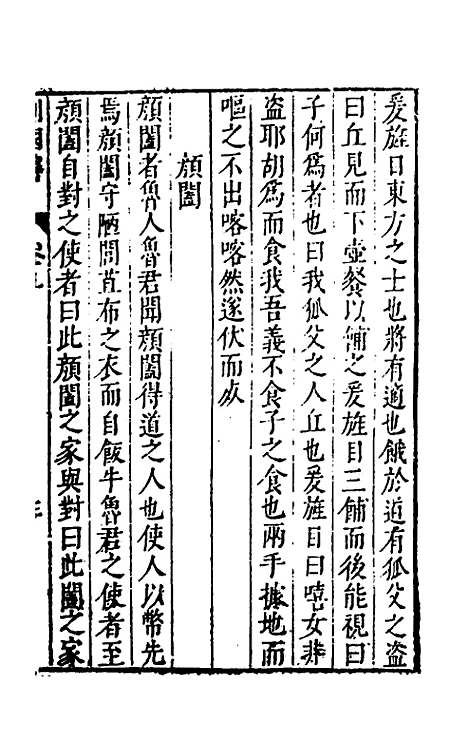 爰旌目東方之士也將有適也餓於道有狐父之盜
曰丘見而下壺餐以餔之爰旌目三餔而後能視曰
子何為者也曰我狐父之人丘也爰旌目曰嘻女非
盜耶胡為而食我吾義不食子之食也兩手據地而
嘔之不出喀喀然遂伏而死
顏闔
顏闔者魯人魯君聞顏闔得道之人也使人以幣先
焉顏闔守陋閭苴布之衣而自飯牛魯君之使者至
顏闔自對之使者曰此顏闔之家與對曰此闔之家